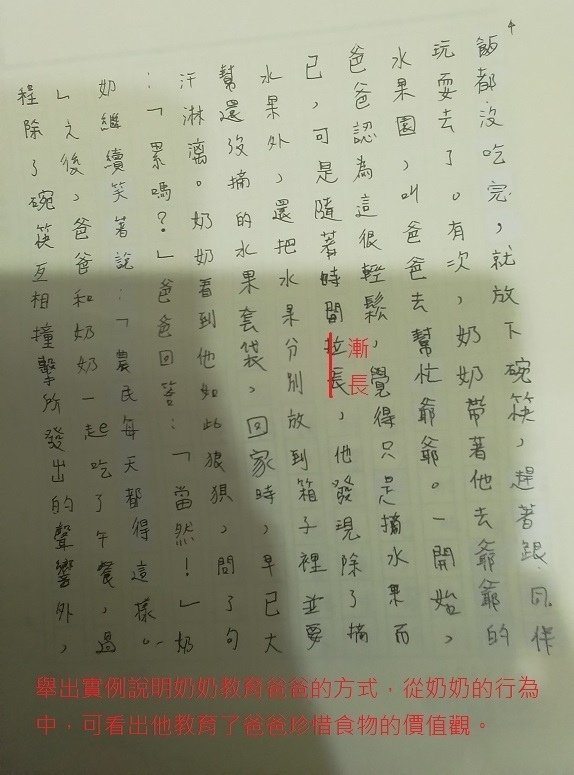 4
飯都沒吃完，就放下碗筷，趕著跟同伴
玩耍去了。有次，奶奶帶著他去爺爺的
水果園，叫爸爸去幫忙爺爺。一開始，
爸爸認為這很輕鬆，覺得只是摘水果而
已，可是隨著時間拉長，他發現除了摘
漸長
水果外，還把水果分別放到箱子裡並要
幫還沒摘的水果套袋，回家時，早已大
汗淋漓。奶奶看到他如此狼狽，問了句
：「累嗎？」爸爸回答：「當然！」奶
奶繼續笑著說：「農民每天都得這樣。
」之後，爸爸和奶奶一起吃了午餐，過
程除了碗筷互相撞擊所發出的聲響外，
舉出實例說明奶奶教育爸爸的方式，從奶奶的行為
中，可看出他教育了爸爸珍惜食物的價值觀。